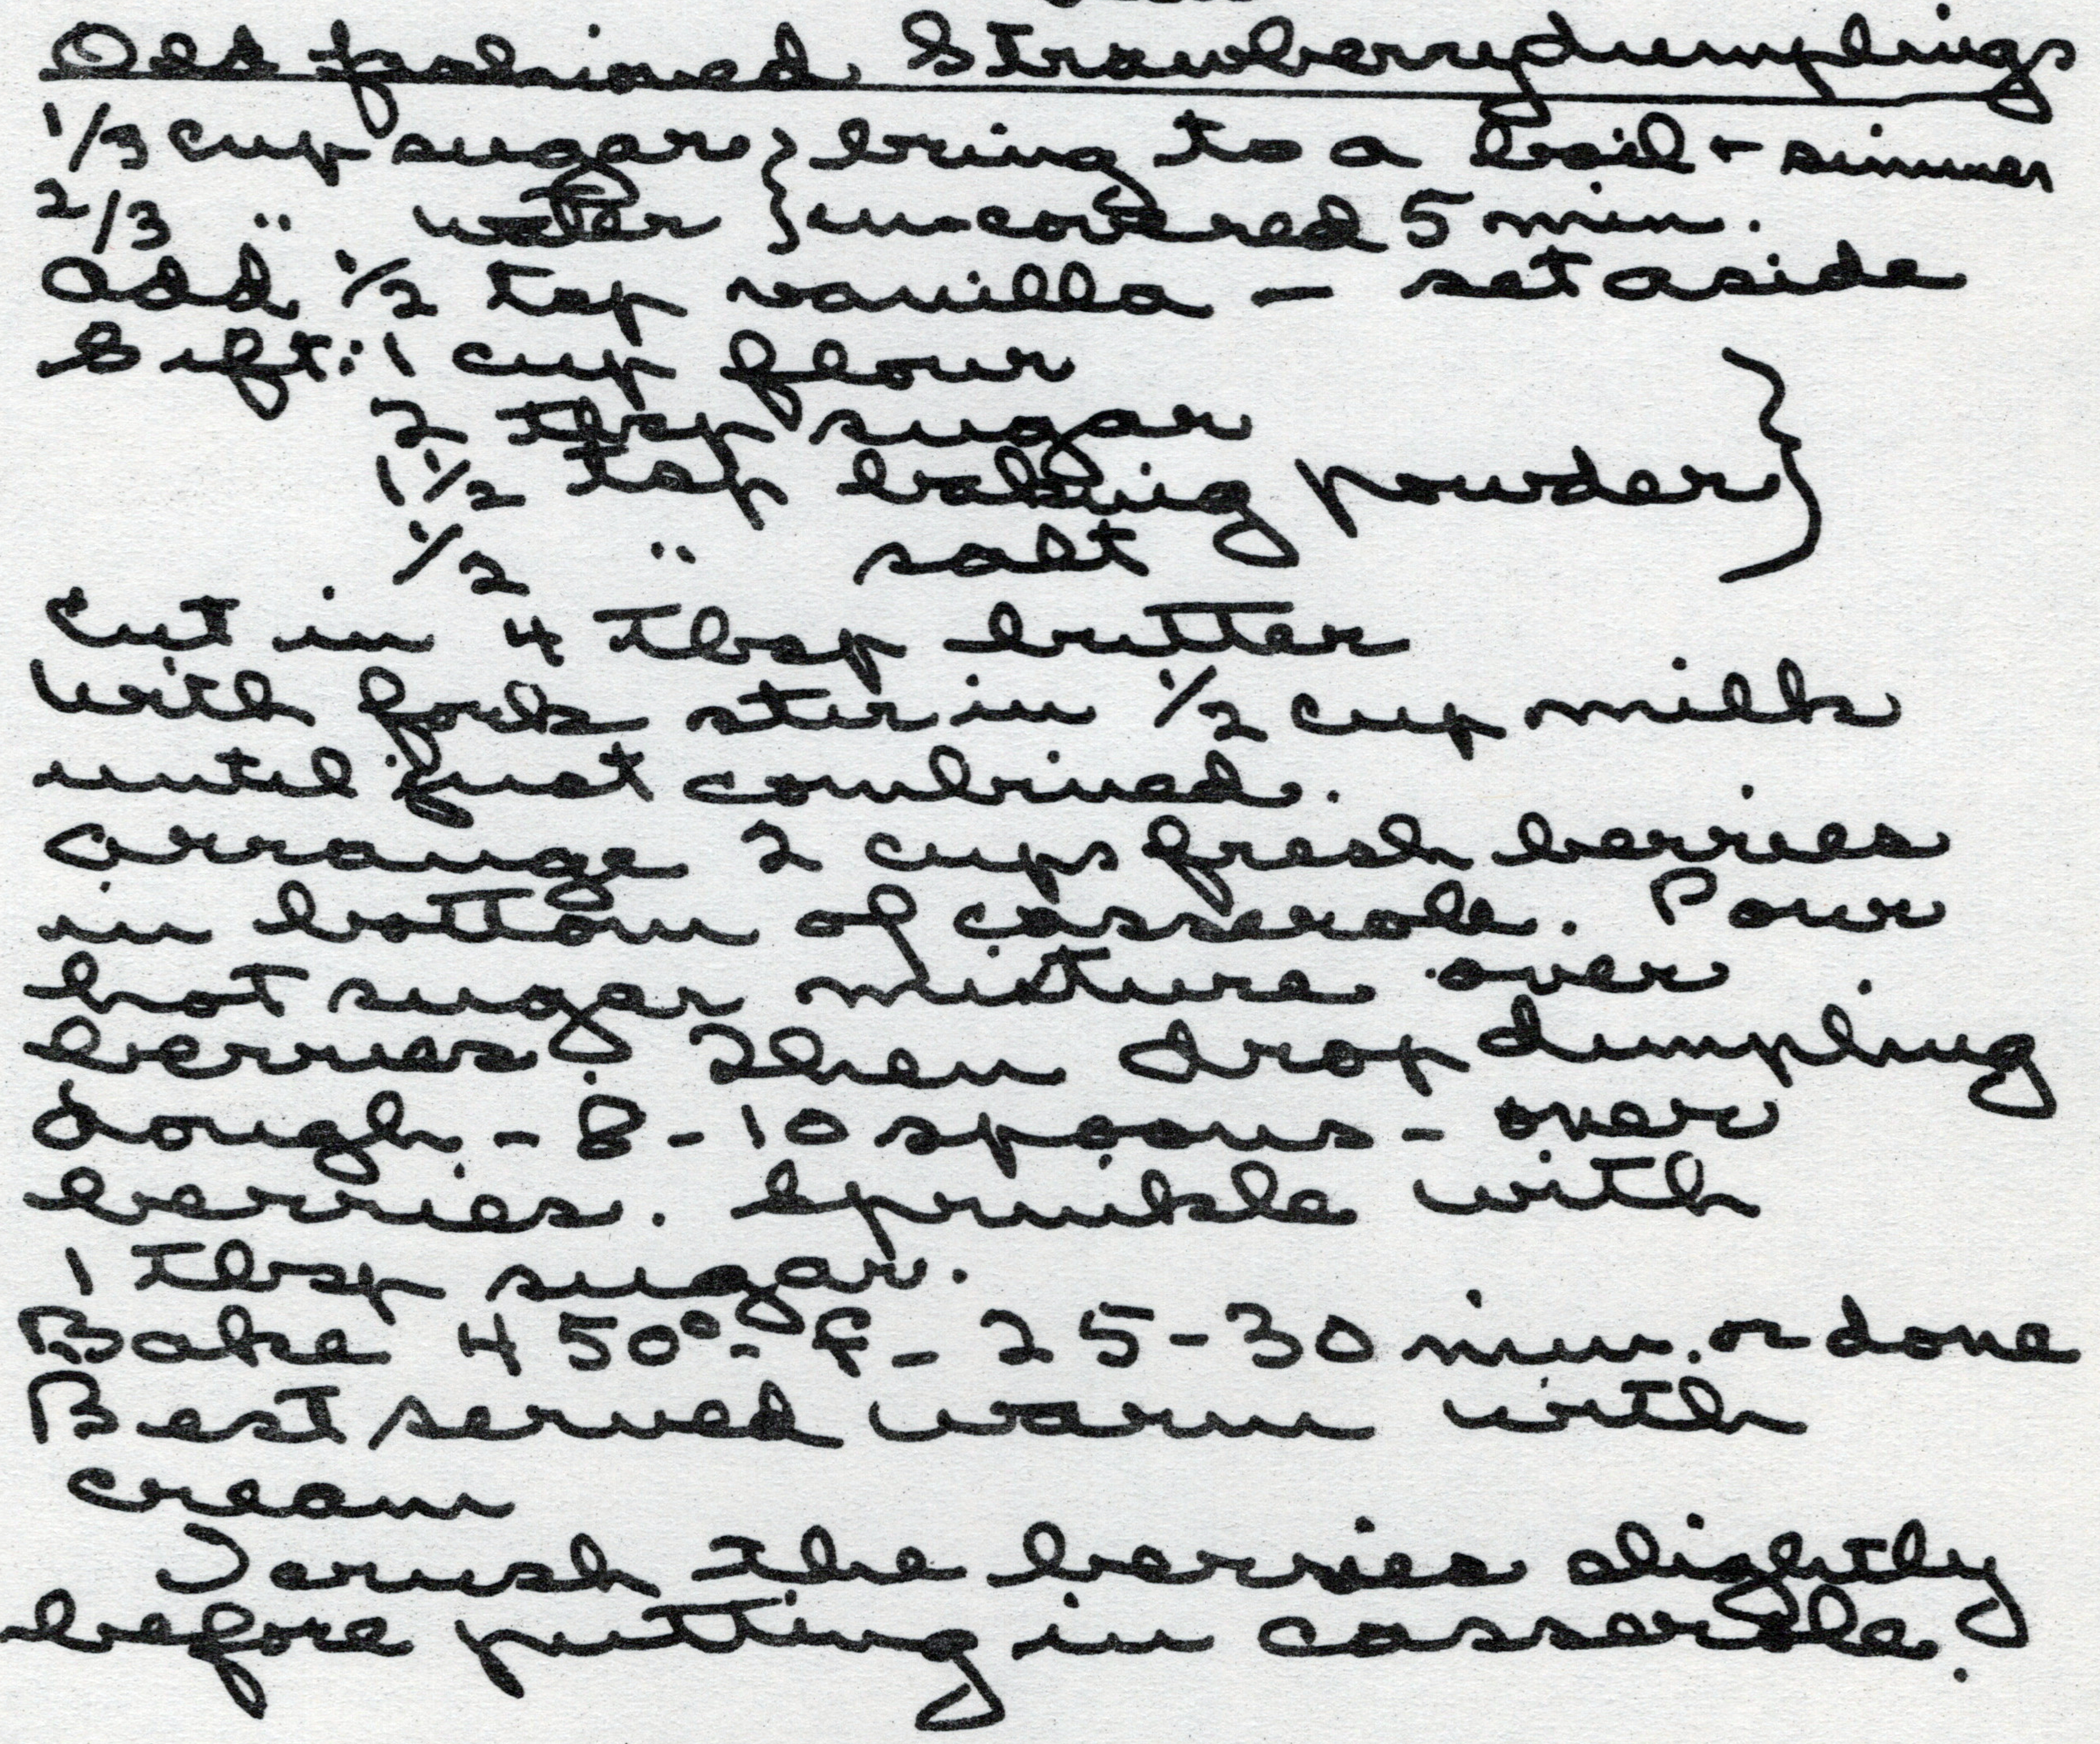 Old fashioned Strawberry dumplings
1/3 cup sugar } bring to a boil + simmer
2/3 " water } un-covered 5 min.
Add 1/2 tsp vanilla — set aside
Sift: 1 cup flour
2 tbsp sugar
1 1/2 tsp baking powder }
1/2 " salt
Cut in 4 Tbsp butter
With fork stir in 1/2 cup milk
until just combined.
Arrange 2 cups fresh berries
in bottom of casserole. Pour
hot sugar mixture over
berries. Then drop dumpling
dough - 8 - 10 spoons - over
berries. Sprinkle with
1 Tbsp sugar.
Bake 450° - F - 25 - 30 min. or done
Best served warm with
cream
I crush the berries slightly
before putting in casserole.